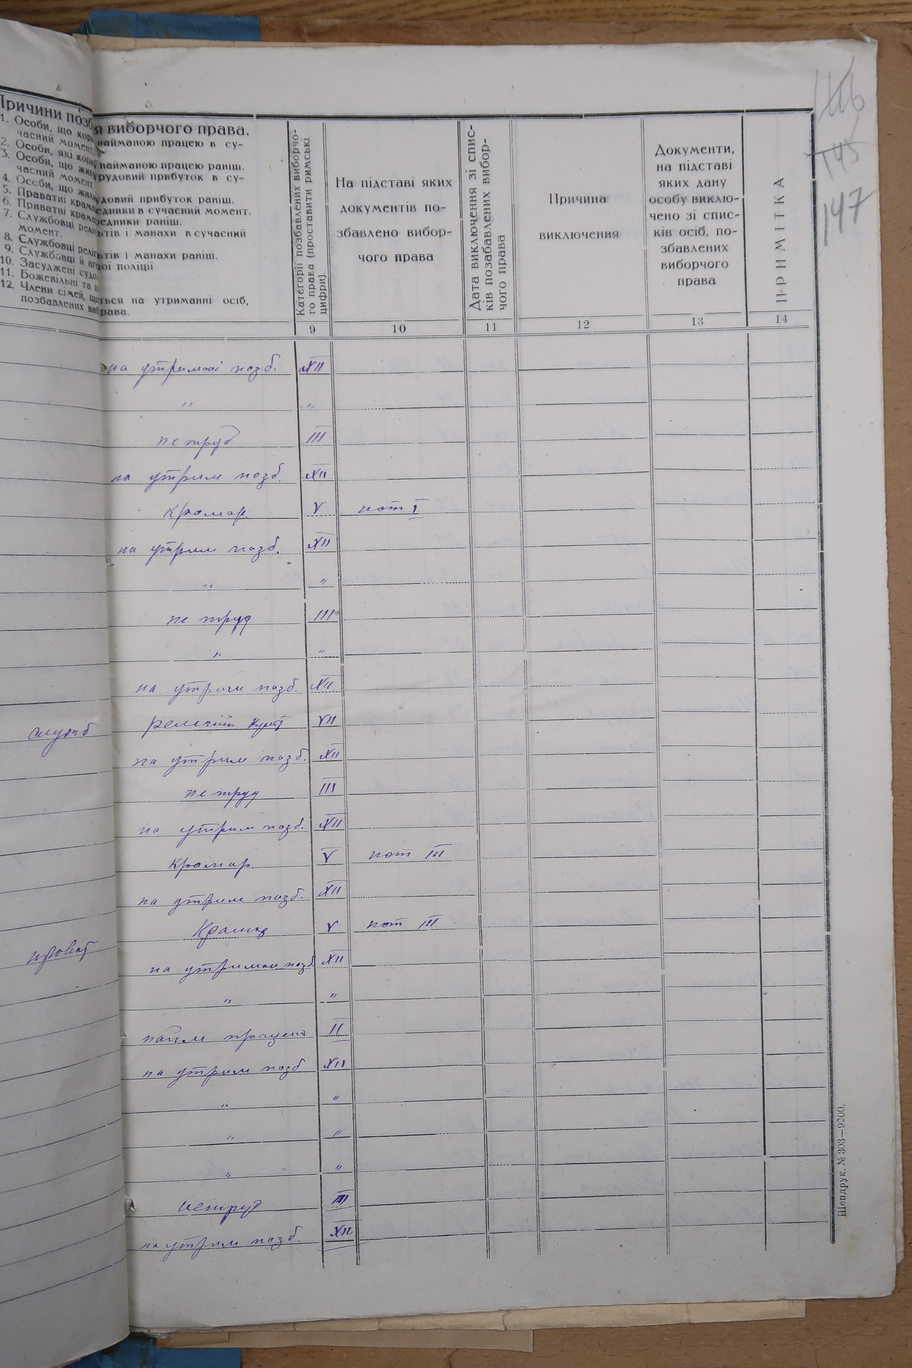 146
145
147
Причини позб
я виборчого права.
1. Особи, що кор
найманою працею в су-
часний момент.
2. Особи, які кори
найманою працею раніш.
3. Особи, що жи
рудовий прибуток в су-
часний момент
4. Особи, що жили
удовий прибуток раніш.
5. Приватні крам
едники в сучасний момент.
6. Приватні крам
едники раніш.
7. Службовці релі
ьтів і манахи в сучасний
момент.
8. Службовці релігі
ьтів і манахи раніш.
9. Службовці й аг
ої поліції
10. Засуджені судо
11. Божевільні та
12. Члени сімей, щ
ться на утриманні осіб,
позбавлених виб
рава.
Категорії позбавлених виборчо-
го права (проставити римські
цифри).
На підставі яких
документів по-
збавлено вибор-
чого права
Дата виключення зі спис-
ків позабавлених вибор-
чого права
Причина
виключення
Документи,
на підставі
яких дану
особу виклю-
чено зі спис-
ків осіб, по-
збавлених
виборчого
права
ПРИМІТКА
9 10 11 12 13 14
на утриман позб. XII
" "
не труд III
на утрим позб. XII
крамар V пот I
на утрим позб. XII
" "
не труд III
" "
на утрим позб. XII
служб
релігій культ VII
на утрим позб. XII
не труд III
на утрим позб. XII
крамар V пот III
на утрим позб. XII
Крамар V пот III
на утриман позб XII
" "
найм II
на утрим позб XII
" "
" "
" "
нетруд III
на утрим позб. XII
Шендрук. № 303—9200.